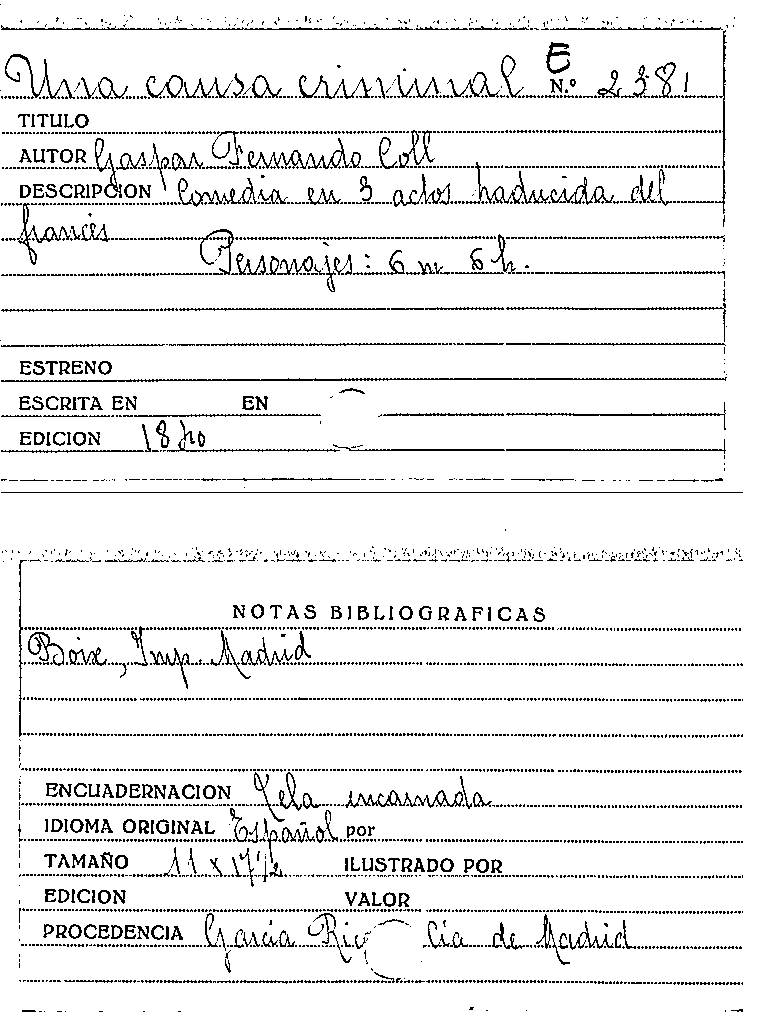 E
Una causa criminal N.º 2381
TITULO
AUTOR Gaspar Fernando Coll
DESCRIPCION Comedia en 3 actos traducida del
francés
Personajes: 6 m 6 h.
ESTRENO
ESCRITA EN EN
EDICION
NOTAS BIBLIOGRAFICAS
Boix, Imp. Madrid
ENCUADERNACION Tela encarnada
IDIOMA ORIGINAL Español por
TAMAÑO 11 x 17 1/2 ILUSTRADO POR
EDICION VALOR
PROCEDENCIA García Rico Cía de Madrid